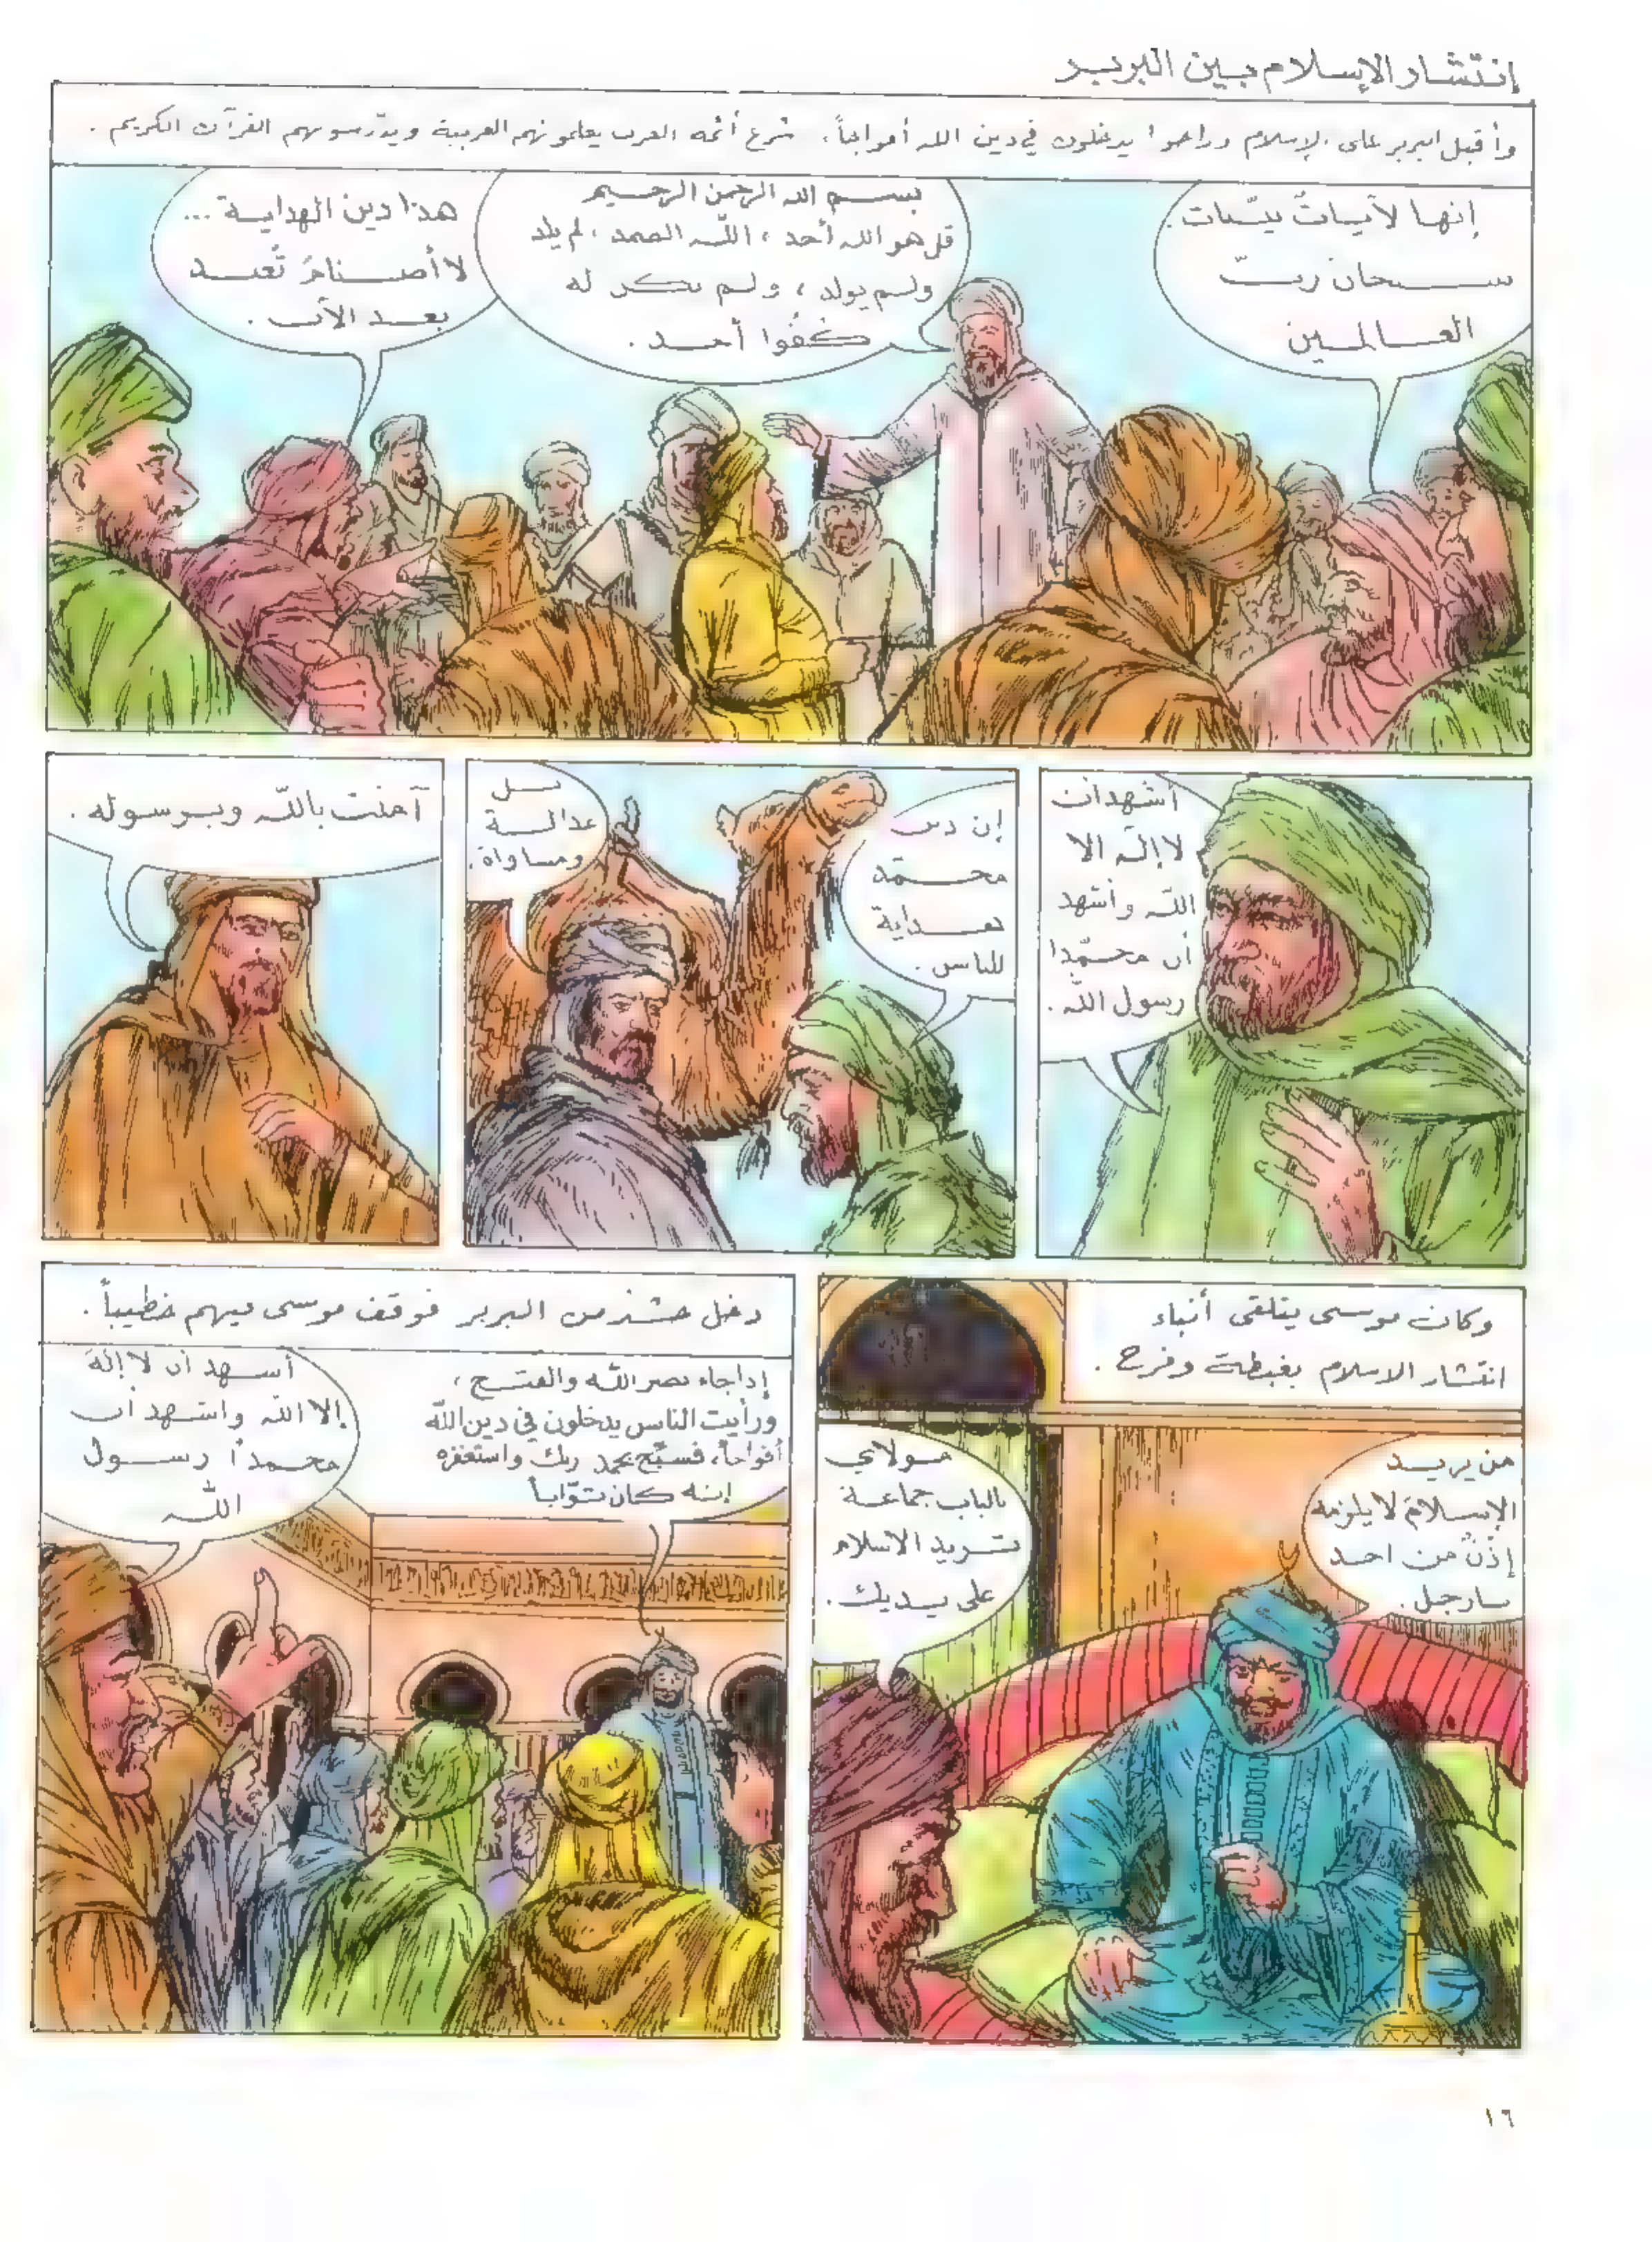 إنتشار الإسلام بين البربر
وأقبل البربر على الإسلام وراحوا يدخلون في دين الله أفواجاً، شرع أئمة العرب يعلمونهم العربية ويدرّسونهم القرآن الكريم.
إنها لآيات بيّنات.
سبحان ربّ
العالمين
بسم الله الرحمن الرحيم
قل هو الله أحد، اللّه الصمد، لم يلد
ولم يولد، ولم يكن له
كفُوا أحد.
هذا دين الهداية...
لا أصنامَ تُعبد
بعد الآن.
أشهد أن
لا إلّه الا
اللّه وأشهد
أن محمّدا
رسول اللّه.
إن دين
محمّد
هداية
للناس.
بل
عدالة
ومساواة.
آمنت باللّه وبرسوله.
وكان موسى يتلقى أنباء
انتشار الاسلام بغبطة وفرح.
من يريد
الإسلامَ لا يلزمه
إذنٌ من احد
يا رجل.
مولاي
بالباب جماعة
تريد الاسلام
على يديك.
دخل حشد من البربر فوقف موسى فيهم خطيباً.
إذا جاء نصر اللّه والفتح،
ورأيت الناس يدخلون في دين اللّه
أفواجاً، فسبّح بحمد ربك واستغفره
إنه كان توّاباً
أشهد أن لا إلهَ
إلا اللّه واشهد أن
محمداً رسول
اللّه
١٦